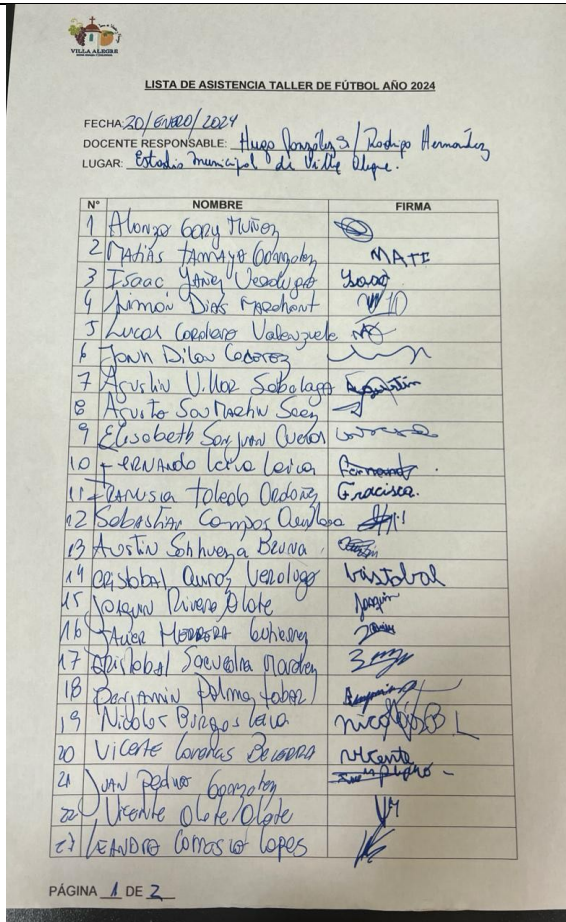 VILLA ALEGRE
LISTA DE ASISTENCIA TALLER DE FÚTBOL AÑO 2024
FECHA: 20/ENERO/2024
DOCENTE RESPONSABLE: Hugo González S/ Rodrigo Hernández
LUGAR: Estadio Municipal de Villa Alegre.
N° NOMBRE FIRMA
1 Alonzo Gary Muñoz
2 Matias Tamayo Gonzalez MATI
3 Isaac Yañez Verdugo Isaac
4 Simón Dias Marchant 10
5 Lucas Cordero Valenzuela
6 Jonh Dilan
7 Agustin Villar Sabalaga Agustin
8 Agusto San Martin Saez
9 Elisabeth San Juan Cuevas
10 Fernando Leiva Leiva Fernando
11 Fransisca Toledo Ordoñez Fracisca.
12 Sebastian Campos
13 Austin Sanhueza Bruna
14 Cristobal Quiroz Verdugo Cristobal
15 Joaquin Rivera Olate Joaquin
16 Javier Herrera Gutierrez
17 Cristobal Saavedra Mardez
18 Benjamin Palma Benjamin
19 Nicolas Burgos Leiva nicolas B L
20 Vicente Becerra vicente
21 Juan Pedro Gonzalez Juan pedro
22 Vicente Olate Olate
23 Leandro Carrasco Lopes
PÁGINA 1 DE 2